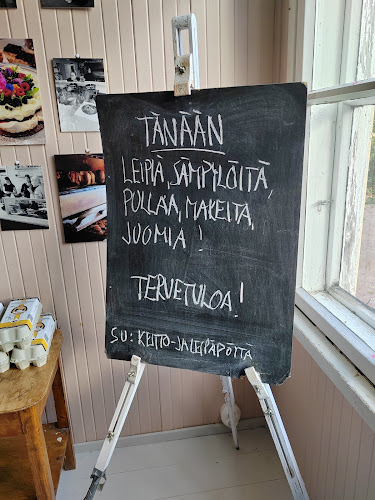 TÄNÄÄN
LEIPIÄ, SÄMPYLÖITÄ,
PULLAA, MAKEITA,
JUOMIA!
TERVETULOA!
SU: KEITTO- JA LEIPÄPÖYTÄ